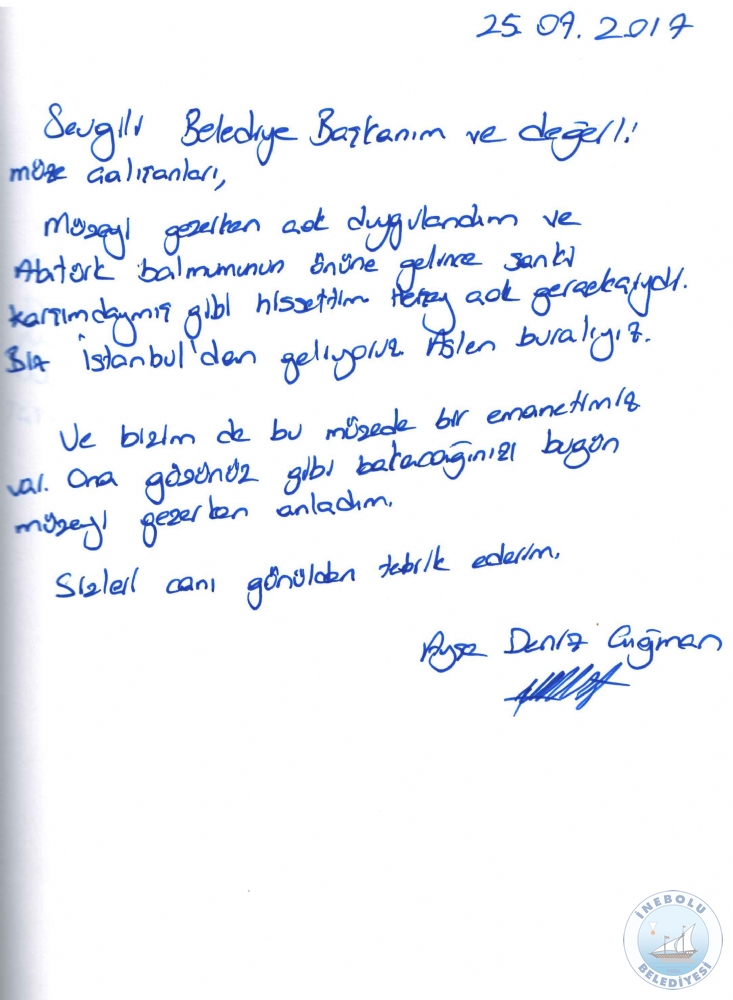 25.07.2017
Sevgili Belediye Başkanım ve değerli
müze çalışanları,
Müzeyi gezerken çok duygulandım ve
Atatürk balmumunun önüne gelince sanki
karşımdaymış gibi hissettim herşey çok gerçekçiydi.
Biz İstanbul'dan geliyoruz. Aslen buralıyız.
Ve bizim de bu müzede bir emanetimiz
var. Ona gözünüz gibi bakacağınızı bugün
müzeyi gezerken anladım.
Sizleri canı gönülden tebrik ederim.
Ayşe Deniz
İNEBOLU
BELEDİYESİ